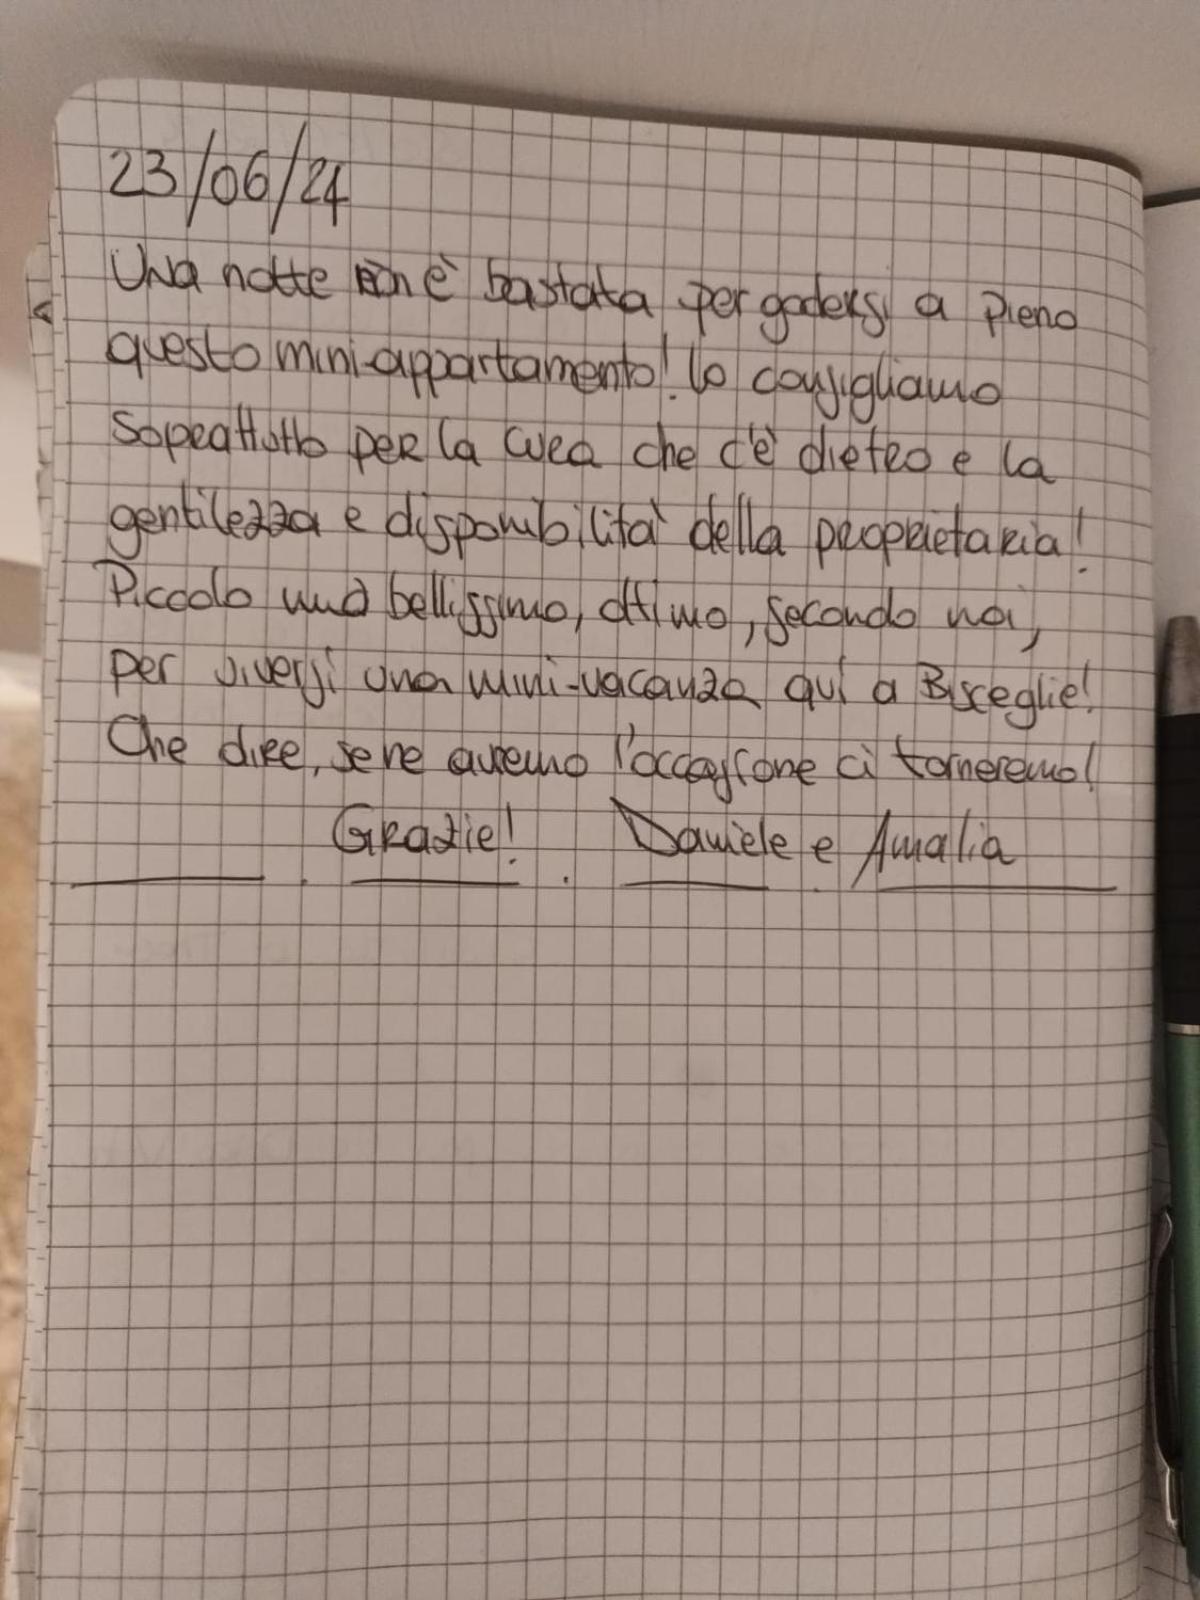 23/06/24
Una notte non è bastata per godersi a pieno
questo mini-appartamento! Lo consigliamo
soprattutto per la cura che c'è dietro e la
gentilezza e disponibilità della proprietaria!
Piccolo ma bellissimo, ottimo, secondo noi,
per viversi una mini-vacanza qui a Bisceglie!
Che dire, se ne avremo l'occasione ci torneremo!
Grazie! Daniele e Amalia